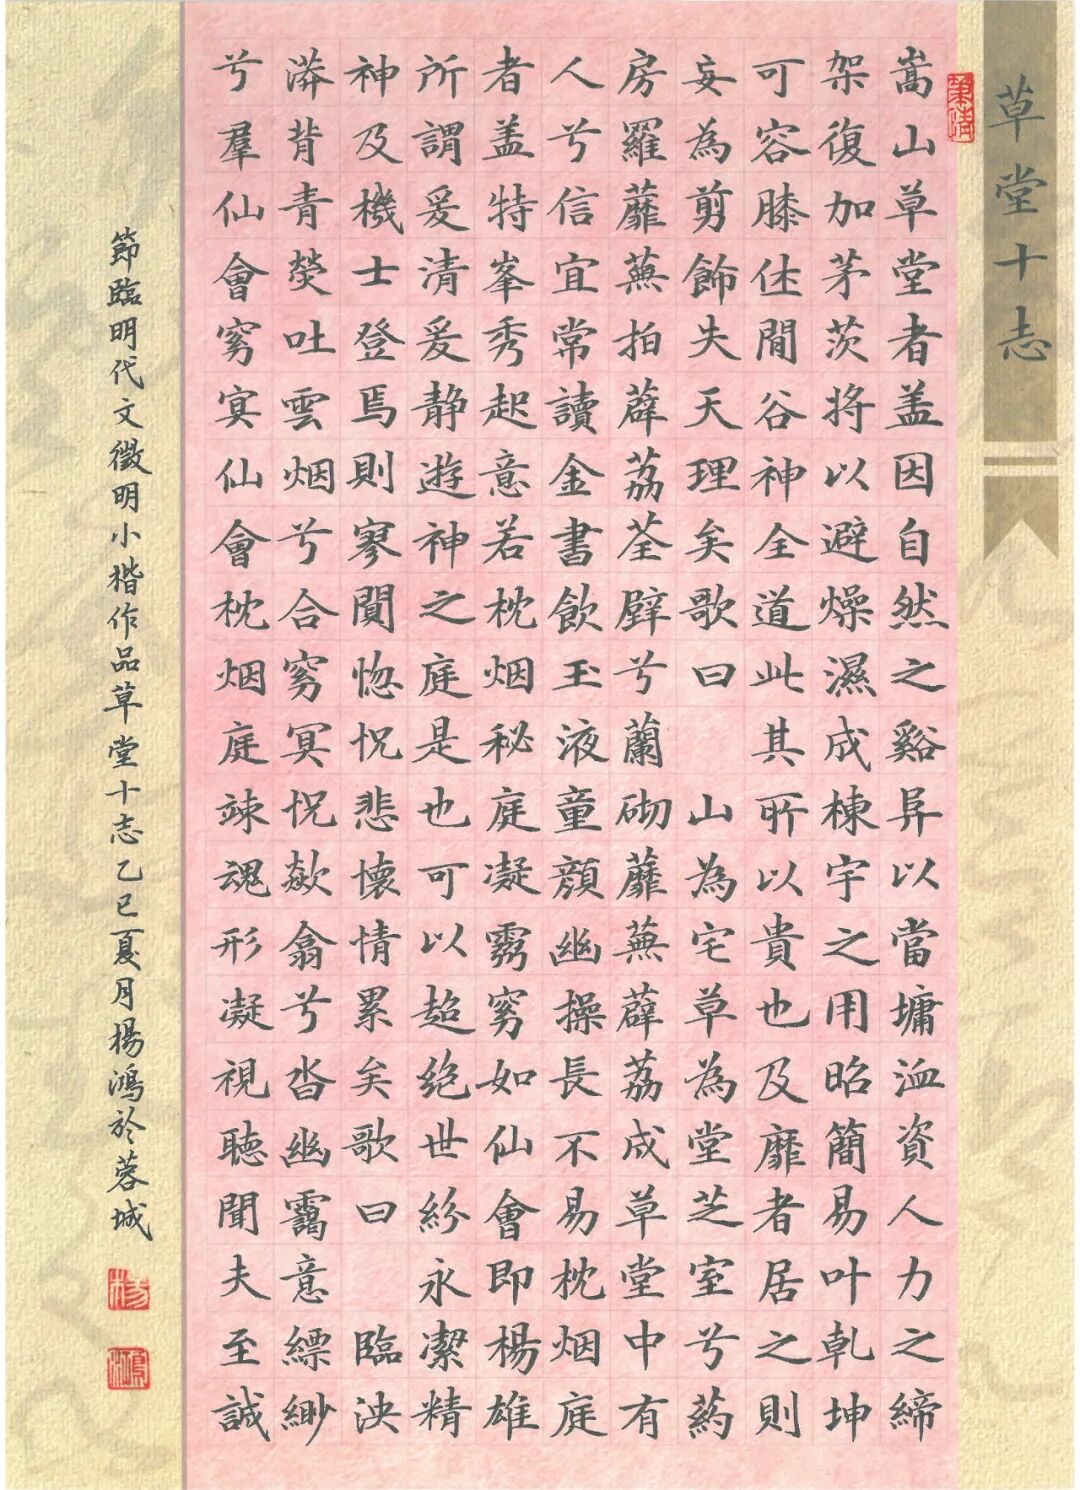 草堂十志
嵩山草堂者盖因自然之谿异以當墉洫資人力之締
架復加茅茨將以避燥濕成棟宇之用昭簡易叶乹坤
可容膝住閒谷神全道此其所以貴也及靡者居之則
妄為剪飾失天理矣歌曰 山為宅草為堂芝室兮葯
房羅蘼蕪拍薜荔荃壁兮蘭砌蘼蕪薜荔成草堂中有
人兮信宜常讀金書飲玉液童顔幽操長不易枕烟庭
者盖特峯秀起意若枕烟秘庭凝霧窈如仙會即楊雄
所謂爰清爰静遊神之庭是也可以超绝世紛永潔精
神及機士登焉則寥闃惚怳悲懷情累矣歌曰 臨泱
漭背青熒吐雲烟兮合窈冥怳欻翕兮沓幽靄意縹緲
兮羣仙會窈冥仙會枕烟庭竦魂形凝視聽聞夫至誠
節臨明代文徵明小楷作品草堂十志乙巳夏月楊鴻於蓉城